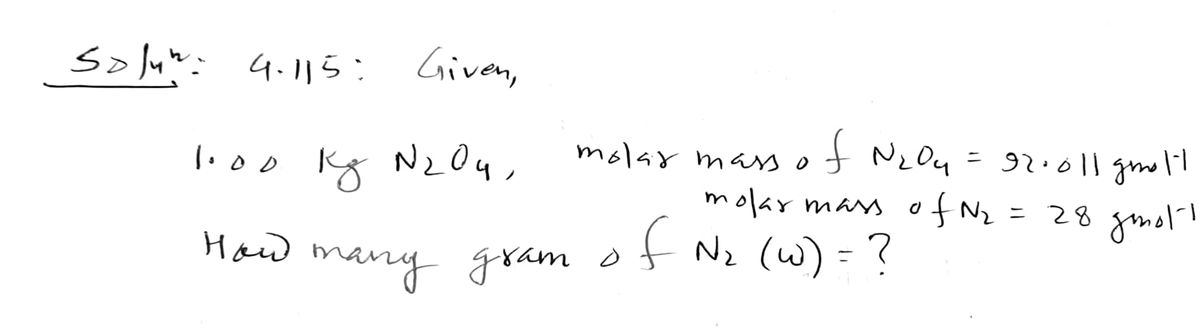 Soluⁿ: 4.115: Given,
1.00 kg N₂O₄, molar mass of N₂O₄ = 92.011 gmol⁻¹
molar mass of N₂ = 28 gmol⁻¹
How many gram of N₂ (W) = ?